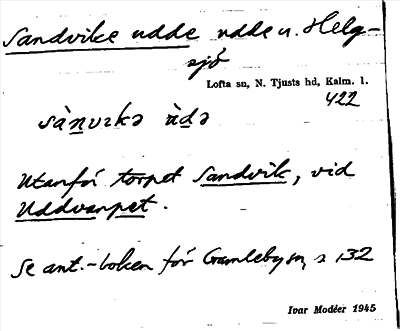 Sandvike udde udde i. Helg-
sjö
Lofta sn, N. Tjusts hd, Kalm. l.
422
sàṉvɩkə ùḏə
Utanför torpet Sandvik, vid
Uddvarpet.
Se ant.-boken för Gamleby sn, s 132
Ivar Modéer 1945